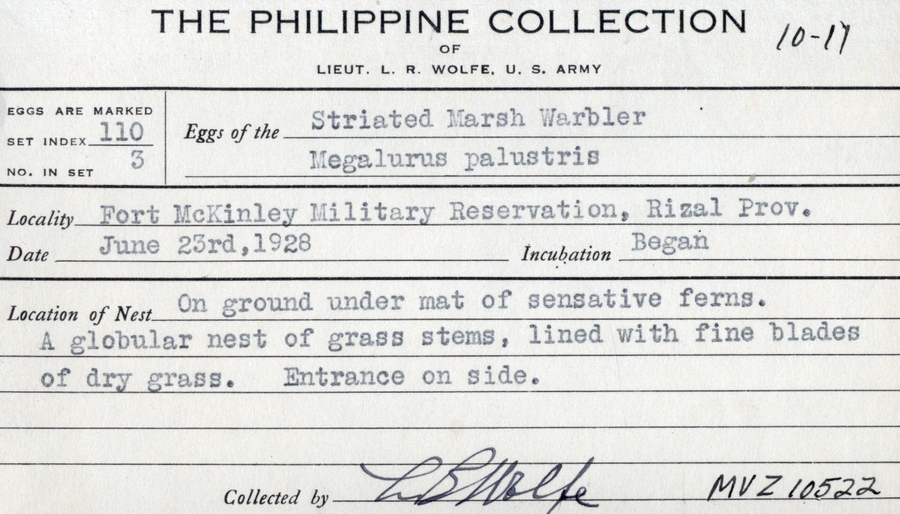 THE PHILIPPINE COLLECTION
10-17
OF
LIEUT. L. R. WOLFE, U. S. ARMY
EGGS ARE MARKED
SET INDEX 110
NO. IN SET 3
Eggs of the Striated Marsh Warbler
Megalurus palustris
Locality Fort McKinley Military Reservation, Rizal Prov.
Date June 23rd, 1928 Incubation Began
Location of Nest On ground under mat of sensative ferns.
A globular nest of grass stems, lined with fine blades
of dry grass. Entrance on side.
Collected by L R Wolfe MVZ 10522